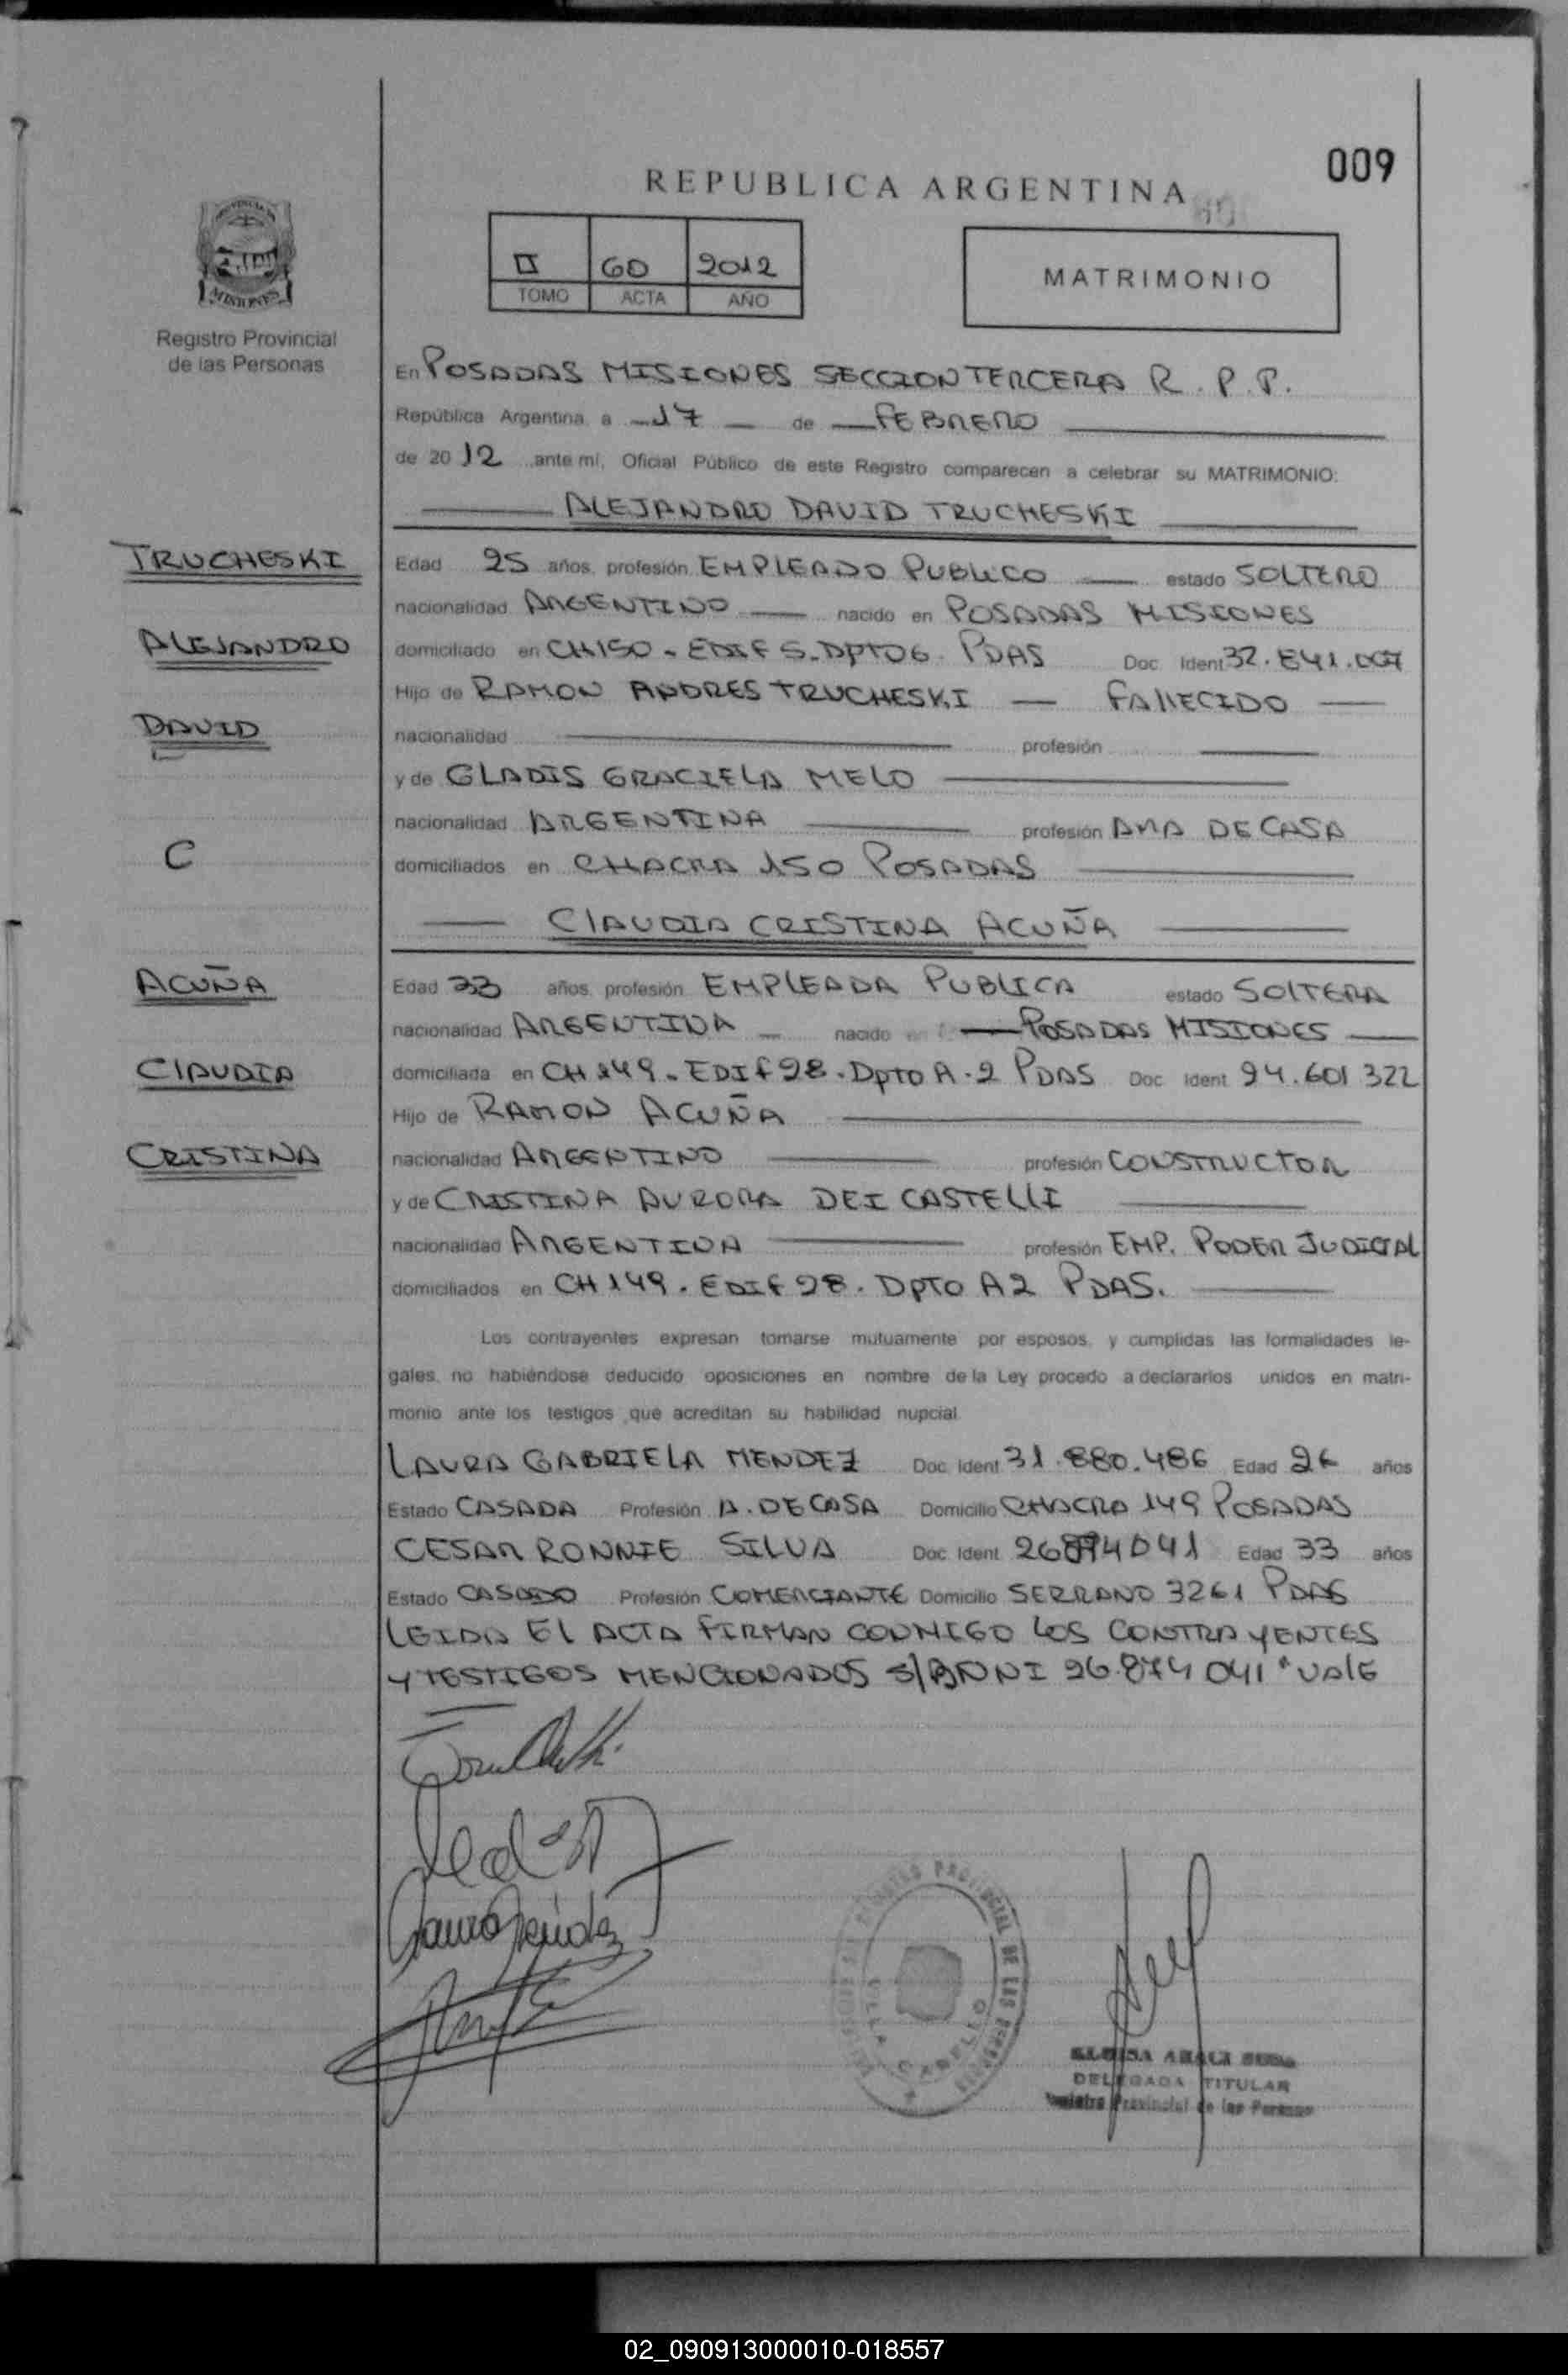 009
REPUBLICA ARGENTINA
II 60 2012
TOMO ACTA AÑO
MATRIMONIO
MISIONES
Registro Provincial
de las Personas
En POSADAS MISIONES SECCION TERCERA R.P.P.
República Argentina, a 17 de FEBRERO
de 2012 ante mí, Oficial Público de este Registro comparecen a celebrar su MATRIMONIO:
ALEJANDRO DAVID TRUCHESKI
TRUCHESKI
Edad 25 años, profesión EMPLEADO PUBLICO estado SOLTERO
nacionalidad ARGENTINO nacido en POSADAS MISIONES
ALEJANDRO
domiciliado en CH150 - EDIF 5 - DPTO 6. PDAS Doc. Ident. 32.841.007
Hijo de RAMON ANDRES TRUCHESKI — FALLECIDO
DAVID
nacionalidad profesión
y de GLADIS GRACIELA MELO
nacionalidad ARGENTINA profesión AMA DE CASA
C
domiciliados en CHACRA 150 POSADAS
CLAUDIA CRISTINA ACUÑA
ACUÑA
Edad 33 años, profesión EMPLEADA PUBLICA estado SOLTERA
nacionalidad ARGENTINA nacido en POSADAS MISIONES
CLAUDIA
domiciliada en CH 149 - EDIF 28 - DPTO A-2 PDAS Doc. Ident. 24.601 322
Hijo de RAMON ACUÑA
CRISTINA
nacionalidad ARGENTINO profesión CONSTRUCTOR
y de CRISTINA AURORA DEI CASTELLI
nacionalidad ARGENTINA profesión EMP. PODER JUDICIAL
domiciliados en CH 149 . EDIF 28 . DPTO A2 PDAS.
Los contrayentes expresan tomarse mutuamente por esposos, y cumplidas las formalidades le-
gales, no habiéndose deducido oposiciones en nombre de la Ley procedo a declararlos unidos en matri-
monio ante los testigos que acreditan su habilidad nupcial.
LAURA GABRIELA MENDEZ Doc. Ident. 31.880.486 Edad 26 años
Estado CASADA Profesión A. DE CASA Domicilio CHACRA 149 POSADAS
CESAR RONNIE SILVA Doc. Ident. Edad 33 años
Estado CASADO Profesión COMERCIANTE Domicilio SERRANO 3261 PDAS
LEIDA EL ACTA FIRMAN CONMIGO LOS CONTRAYENTES
Y TESTIGOS MENCIONADOS S/R DNI 26.874 041 "VALE
Laura Mendez
REGISTRO PROVINCIAL DE LAS PERSONAS
VILLA CABELLO
DELEGADA TITULAR
Registro Provincial de las Personas
02_090913000010-018557